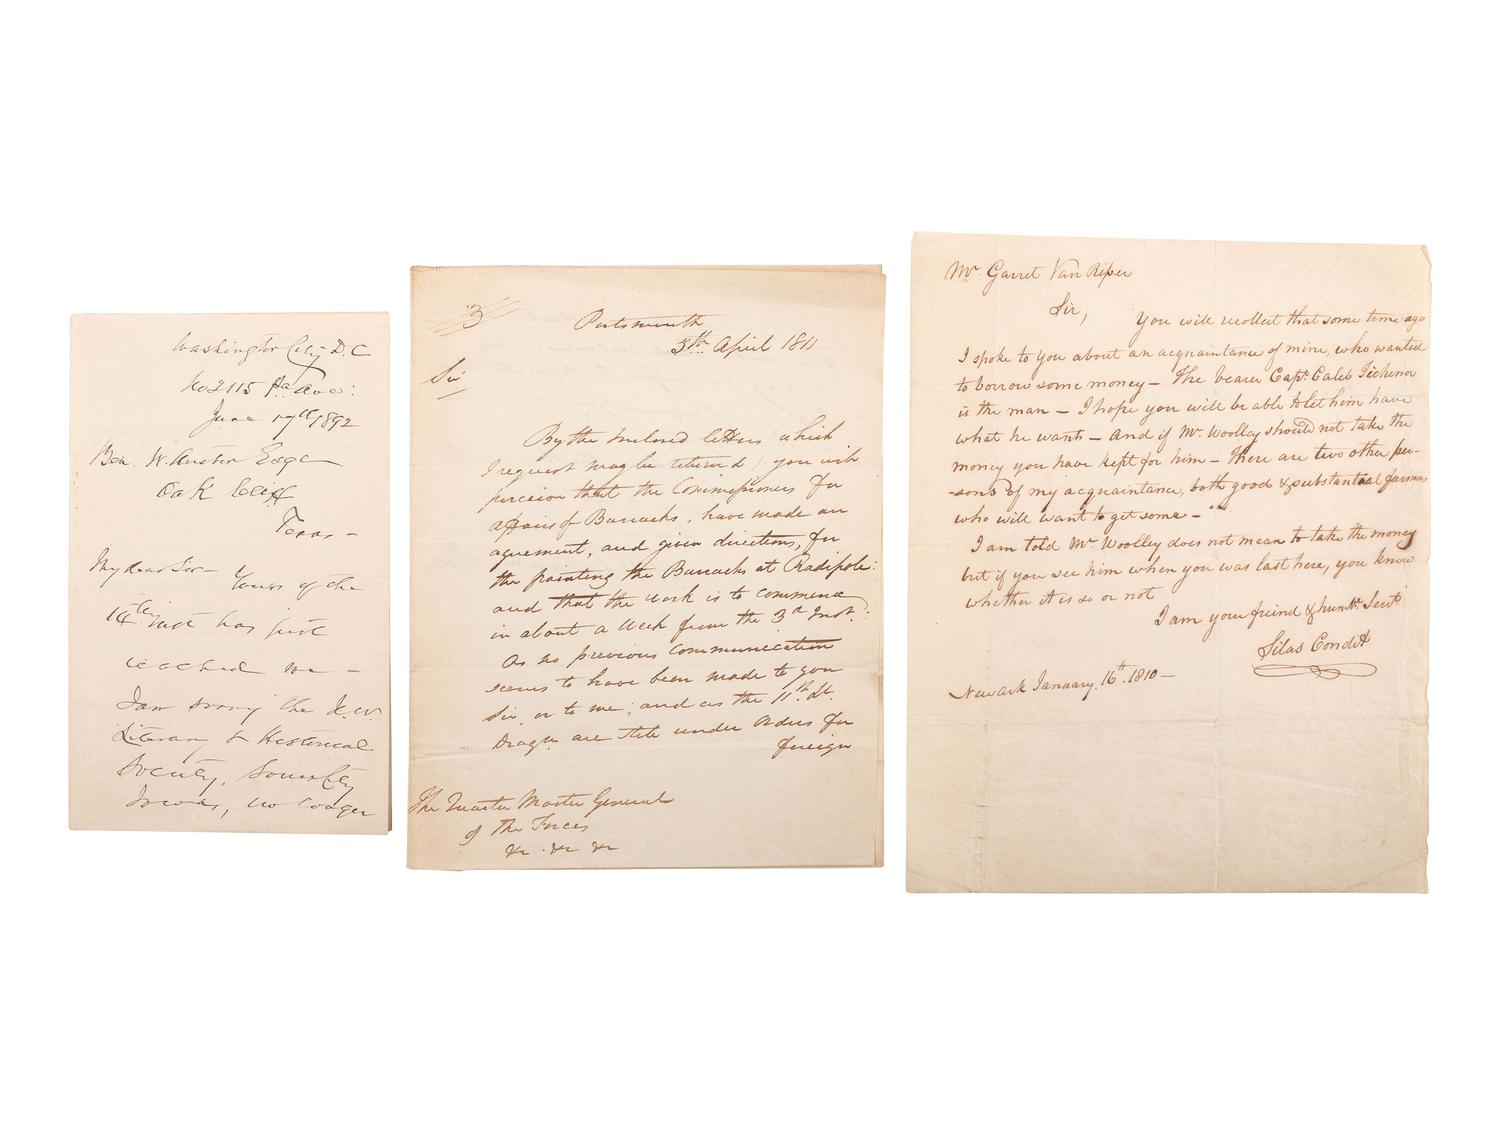 Washington City D.C
No 2115 Pa Ave:
June 17th 1892
Ben. W. Austin Esqr
Oak Cliff
Texas –
My dear Sir – Yours of the
14th inst has just
reached me –
I am sorry the
Literary & Historical
Society,
no longer
3
Portsmouth
5th April 1811
Sir
By the inclosed letters (which
I request may be returned) you will
perceive that the Commissioners for
affairs of Barracks, have made an
agreement, and given directions, for
the painting the Barracks at Radipole:
and that the work is to commence
in about a Week from the 3d Inst:
As no previous communication
seems to have been made to you
Sir, or to me; and as the 11th Lt.
Dragns are still under Orders for
foreign
The Quarter Master General
of the Forces
&c &c &c
Mr. Garret Van Riper
Sir, You will recollect that some time ago
I spoke to you about an acquaintance of mine, who wanted
to borrow some money – The bearer Capt. Caleb Tichenor
is the man – I hope you will be able to let him have
what he wants – and if Mr. Woolley should not take the
money you have kept for him – there are two other per-
-sons of my acquaintance, both good & substantial farmers
who will want to get some –
I am told Mr. Woolley does not mean to take the money
but if you see him when you was last here, you know
whether it is so or not
I am your friend & humble Servt
Silas Condit
Newark January. 16th. 1810 –